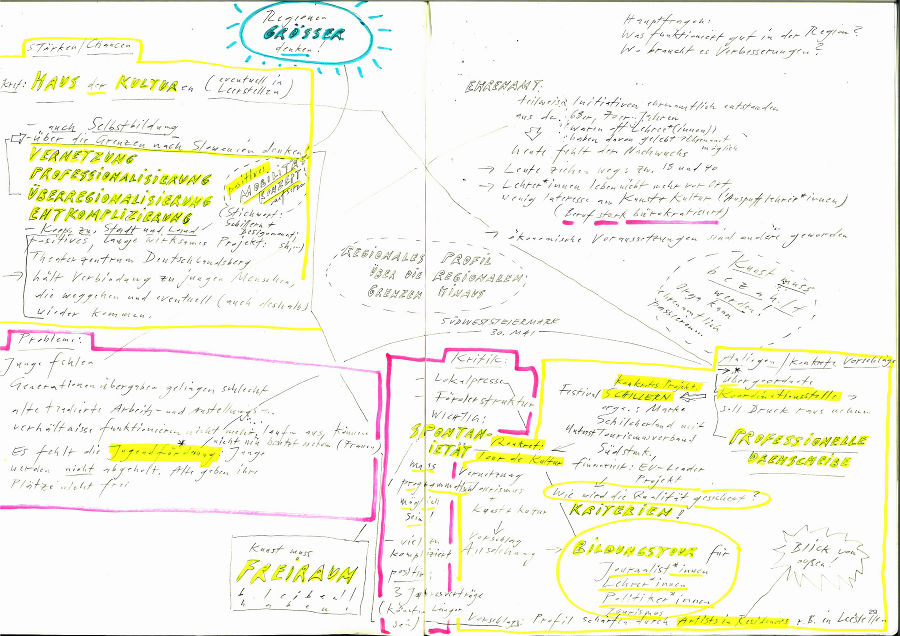 Regionen
GRÖSSER
denken!
Stärken/Chancen
HAUS der KULTUREN (eventuell in
Leerstellen)
- auch Selbstbildung
- über die Grenzen nach Slowenien denken!
VERNETZUNG
PROFESSIONALISIERUNG
ÜBERREGIONALISIERUNG
ENTKOMPLIZIERUNG
MOBILITÄTS
KONZEPT
(Stichwort:
Schillern +
- Koop zu Stadt und Land
Positives, lange wirksames Projekt:
Theaterzentrum Deutschlandsberg
→ hält Verbindung zu jungen Menschen,
die weggehen und eventuell (auch deshalb)
wieder kommen.
Probleme:
Junge fehlen
Generationenübergaben gelingen schlecht
alte tradierte Arbeits- und Anstellungs-
verhältnisse funktionieren nicht mehr
Es fehlt die Jugendförderung*: Junge
werden nicht abgeholt, Alte geben ihre
Plätze nicht frei
Kunst muss
FREIRAUM
bleiben!
haben!
Hauptfragen:
Was funktioniert gut in der Region?
Wo braucht es Verbesserungen?
EHRENAMT:
teilweise Initiativen ehrenamtlich entstanden
aus den 68er, 70er-Jahren
: waren oft Lehrer(innen)
: haben davon gelebt → Ehrenamt
möglich
heute fehlt der Nachwuchs
→ Leute ziehen weg zw. 18 und 40
→ Lehrer*innen leben nicht mehr vor Ort,
wenig Interesse am Kunst + Kultur
(Beruf stark bürokratisiert)
→ ökonomische Voraussetzungen sind andere geworden
REGIONALES PROFIL
ÜBER DIE REGIONALEN
GRENZEN HINAUS
SÜDWESTSTEIERMARK
30. MAI
Kunst muss
bezahlt
werden!
Orga kann
ehrenamtlich
passieren
Kritik:
- Lokalpresse
- Förderstruktur
Wichtig:
SPONTAN-
IETÄT
muss
programmatisch
möglich
sein!
- viel zu
kompliziert
positiv:
3 Jahresverträge
(könnten länger
sein)
Konkret:
Tour de Kultur
Vernetzung
Tourismus
Kunst + Kultur
Vorschlag
Ausschilderung
konkretes Projekt:
Festival SCHILLERN
orga.: Marke
Schilcherland mit
Tourismusverband
Südstmk,
finanziert: EU-Leader
Projekt
Wie wird die Qualität gesichert?
KRITERIEN!
→ BILDUNGSTOUR für
Journalist*innen
Lehrer*innen
Politiker*innen
Tourismus
Anliegen/konkrete Vorschläge
→ * übergeordnete
Koordinationsstelle →
soll Druck rausnehmen
PROFESSIONELLE
DREHSCHEIBE
Blick von
außen!
Vorschlag: Profil schärfen durch Artists in Residences z.B. in Leerstellen